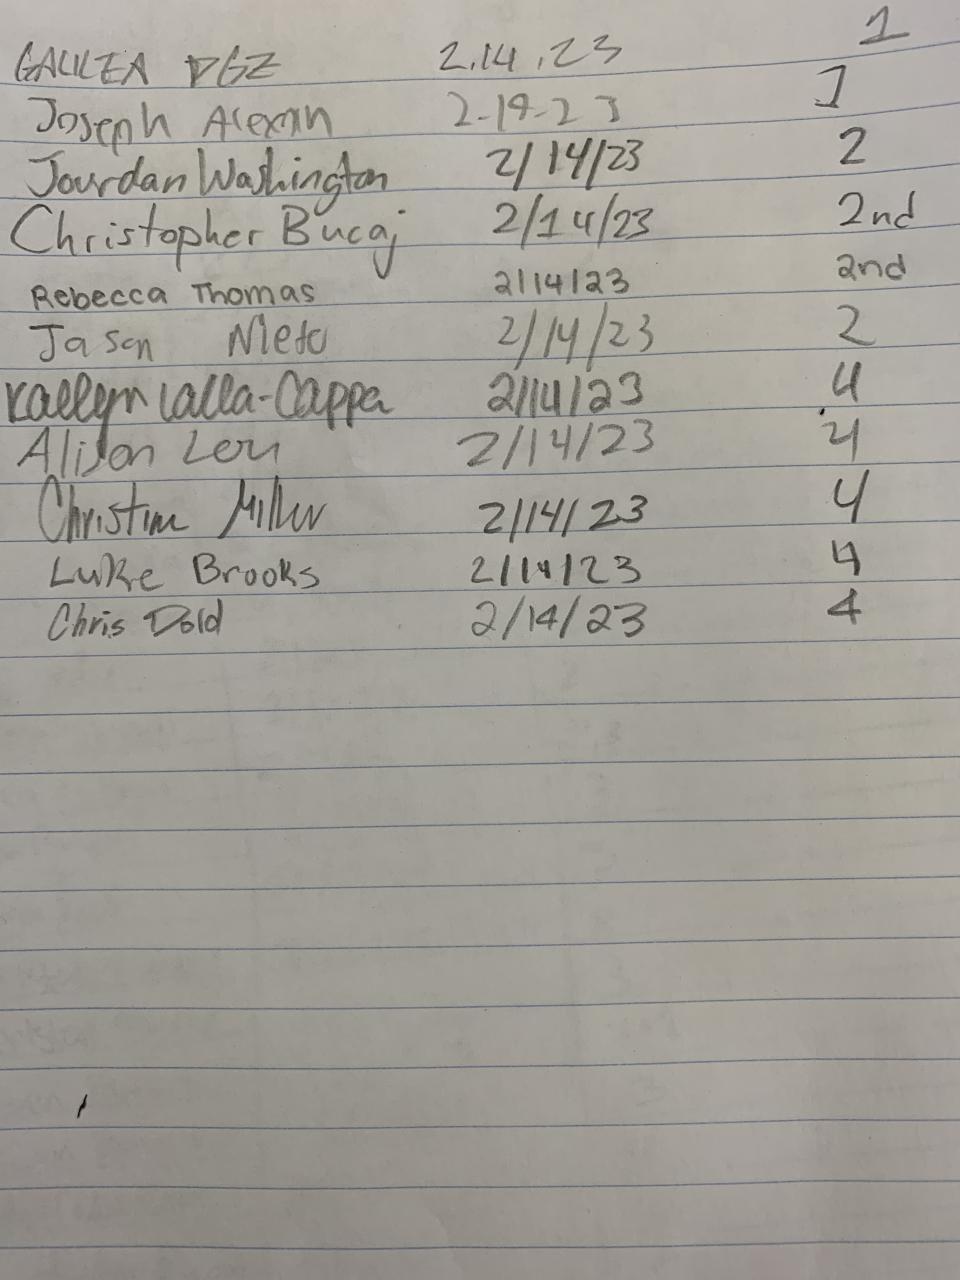 GALILEA DGZ 2.14.23 1
Joseph 2-14-23 1
Jourdan Washington 2/14/23 2
Christopher Bucaj 2/14/23 2nd
Rebecca Thomas 2/14/23 2nd
Jason Nieto 2/14/23 2
Lalla-Cappa 2/14/23 4
Alison 2/14/23 4
Christine Miller 2/14/23 4
Luke Brooks 2/14/23 4
Chris Dold 2/14/23 4